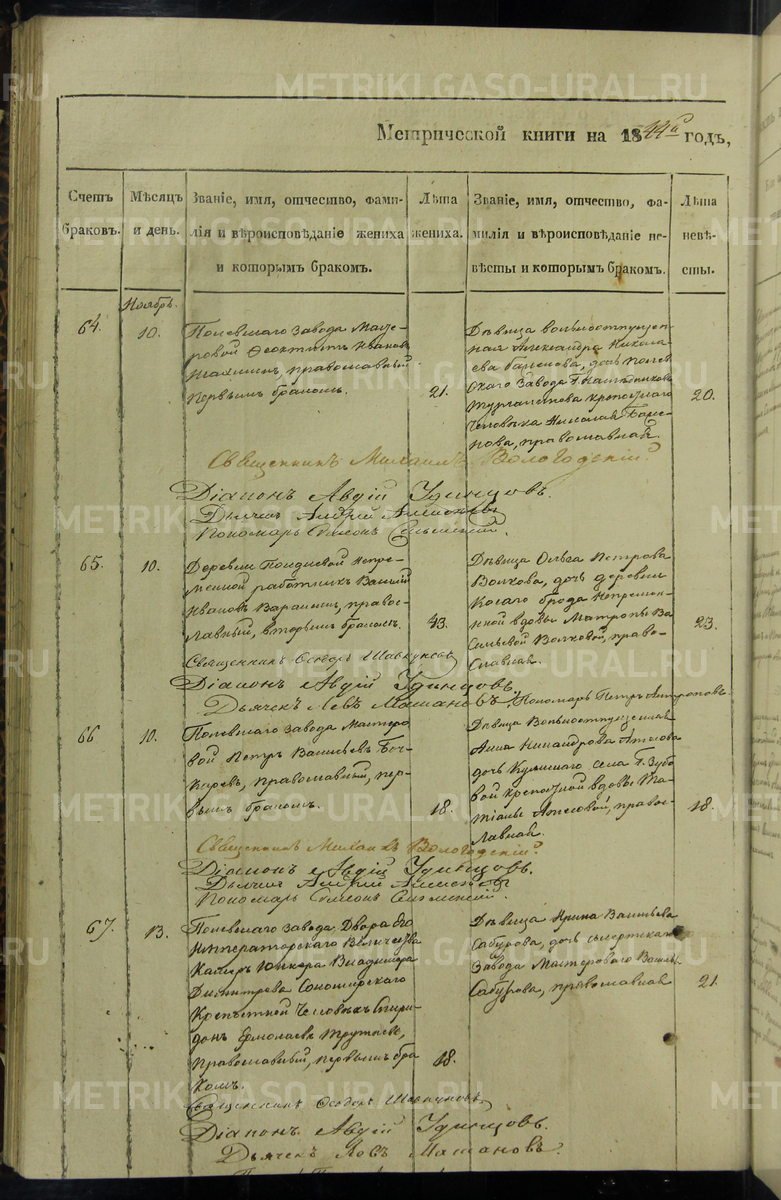 Метрической книги на 1844й годъ,
Счетъ браковъ.
Мѣсяцъ и день.
Званіе, имя, отчество, фами-
лія и вѣроисповѣданіе жениха
и которымъ бракомъ.
Лѣта
жениха.
Званіе, имя, отчество, фа-
милія и вѣроисповѣданіе не-
вѣсты и которымъ бракомъ.
Лѣта
невѣ-
сты.
Ноябрь.
64.
10.
Полевшаго завода Масте-
ровой Феоктистъ Ивановъ
православный
первымъ бракомъ.
21.
Дѣвица вольноотпущен-
ная Александра Никола-
ева дочь Полев-
скаго завода Г.
Турчанинова крепостнаго
человѣка Николая
православная.
20.
Священникъ Михаилъ Вологодскій.
Діаконъ Авдій Удинцовъ.
Дьячекъ Андрей
Пономарь Симеонъ
65.
10.
Деревни Непре-
менной работникъ Василій
Ивановъ правос-
лавный, вторымъ бракомъ.
43.
Дѣвица Ольга Петрова
Волкова, дочь деревни
Косаго брода Непремен-
ной вдовы Матроны Ва
сильевой Волковой, право-
славная.
23.
Священникъ Феодоръ Шавкуновъ
Діаконъ Авдій Удинцовъ.
Дьячекъ Левъ Матановъ. Пономарь Петръ Антроповъ.
66
10.
Полевшаго завода Мастеро
вой Петръ Васильевъ Боч-
каревъ, православный, пер-
вымъ бракомъ.
18.
Дѣвица Вольноотпущенная
Анна Никандрова
дочь села Г. Зубо
вой крепостной вдовы Та-
тіаны правос-
лавная.
18.
Священникъ Михаилъ Вологодскій.
Діаконъ Авдій Удинцовъ.
Дьячекъ Андрей
Пономарь Симеонъ
67.
13.
Полевшаго завода Двора Его
Императорскаго Величества
Камеръ Юнкера Владимира
Димитрева Соломирскаго
Крепостной человѣкъ Спири-
донъ Ермолаевъ
православный, первымъ бра
комъ.
18.
Дѣвица Ирина Васильева
Сабурова, дочь Сысертскаго
завода Мастероваго Василья
Сабурова, православная
21.
Священникъ Феодоръ Шавкуновъ
Діаконъ Авдій Удинцовъ.
Дьячекъ Левъ Матановъ.
METRIKI.GASO-URAL.RU